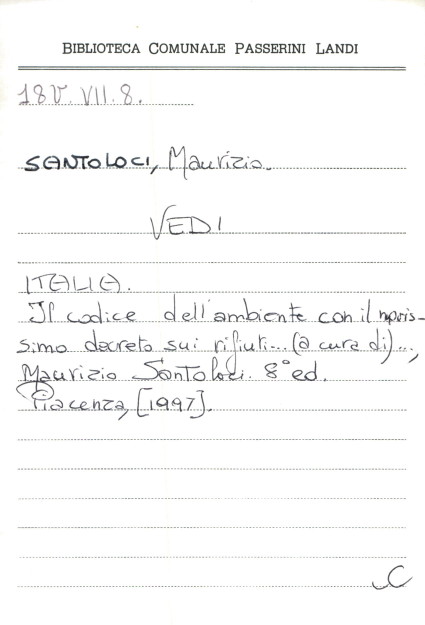 BIBLIOTECA COMUNALE PASSERINI LANDI
18V. VII. 8.
SANTOLOCI, Maurizio.
VEDI
ITALIA.
Il codice dell'ambiente con il novis-
simo decreto sui rifiuti... (a cura di)...,
Maurizio Santoloci. 8° ed.
Piacenza, [1997].
C